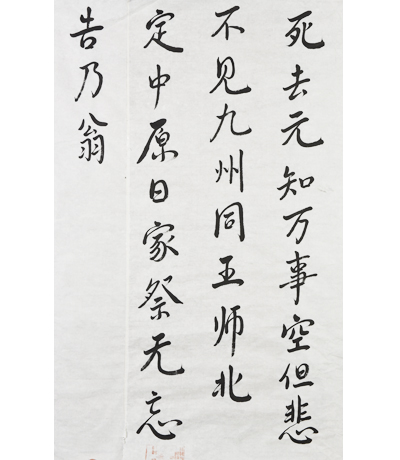 死去元知万事空但悲
不见九州同王师北
定中原日家祭无忘
告乃翁